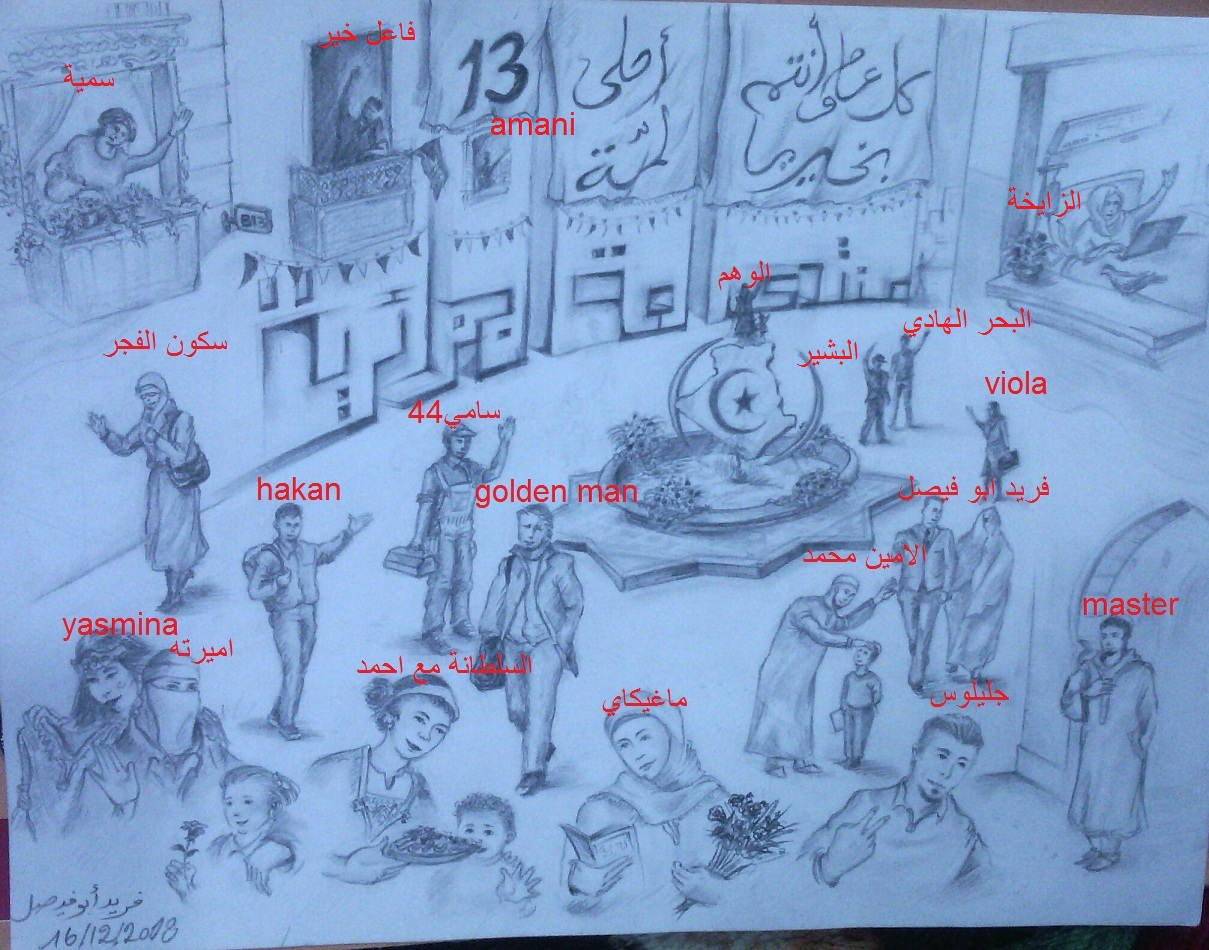 فاعل خير
سمية
13
أحلى
لمّة
كل عام وأنتم
بخير
amani
الزايخة
الوهم
منتدى اللمة الجزائرية
البحر الهادي
البشير
سكون الفجر
viola
سامي44
hakan
golden man
فريد ابو فيصل
الامين محمد
master
yasmina
اميرته
السلطانة مع احمد
ماغيكاي
جليلوس
فريد أبو فيصل
16/12/2018